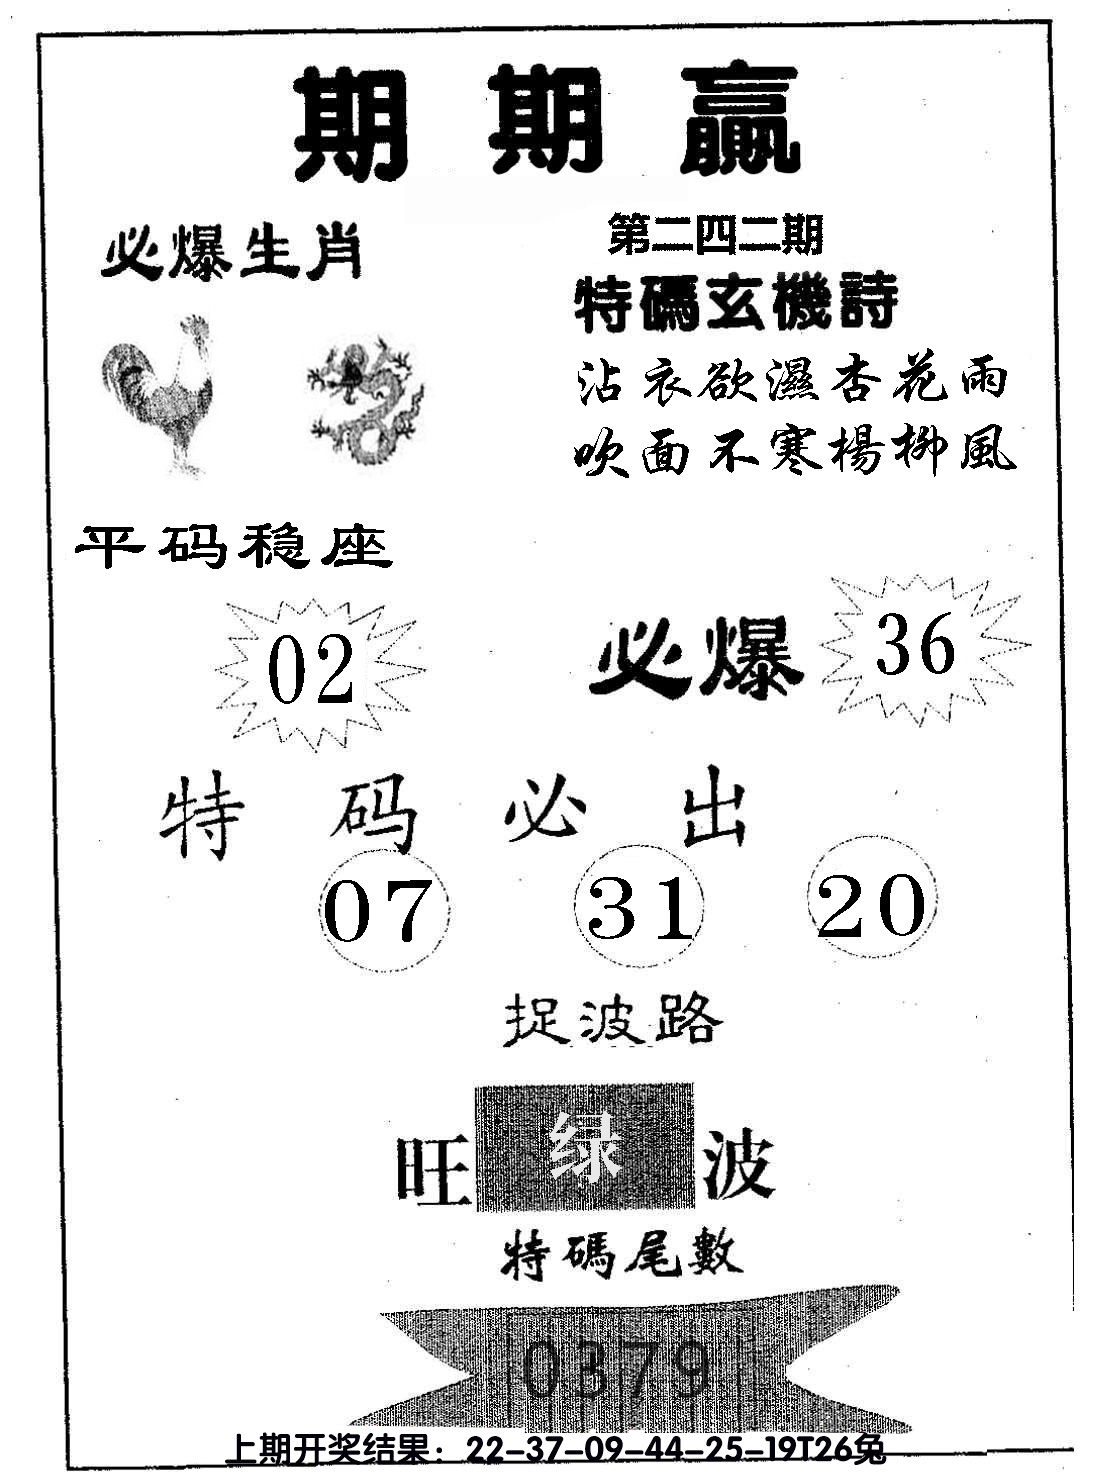 期期贏
必爆生肖
第二四二期
特碼玄機詩
沾衣欲濕杏花雨
吹面不寒楊柳風
平码稳座
02
必爆 36
特码必出
07 31 20
捉波路
旺 绿 波
特碼尾數
0379
上期开奖结果：22-37-09-44-25-19T26兔